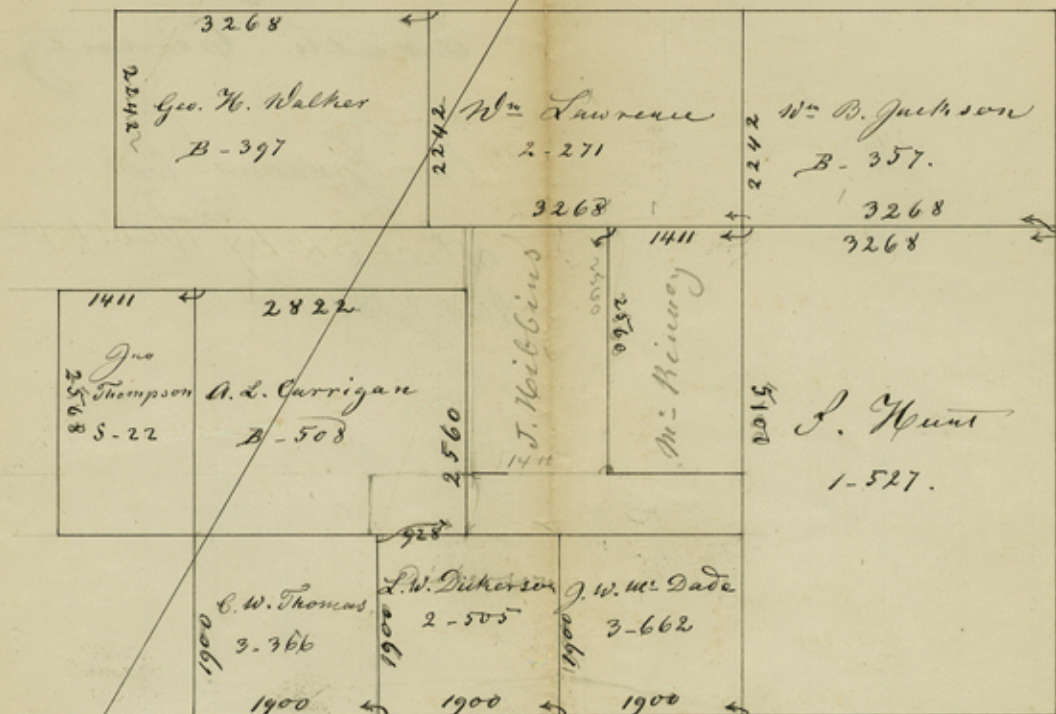 3268
2242
Geo. H. Walker
B-397
2242
Wm Lawrence
2-271
3268
2242
Wm B. Jackson
B-357.
3268
1411
3268
1411
2822
2568
Jno
Thompson
S-22
A. L. Carrigan
B-508
2560
J. Hibbins
1411
2560
McKinney
5100
S. Hunt
1-527.
928
C. W. Thomas
3-366
1900
1900
L. W. Dickerson
2-505
1900
1900
J. W. McDade
3-662
1900
1900